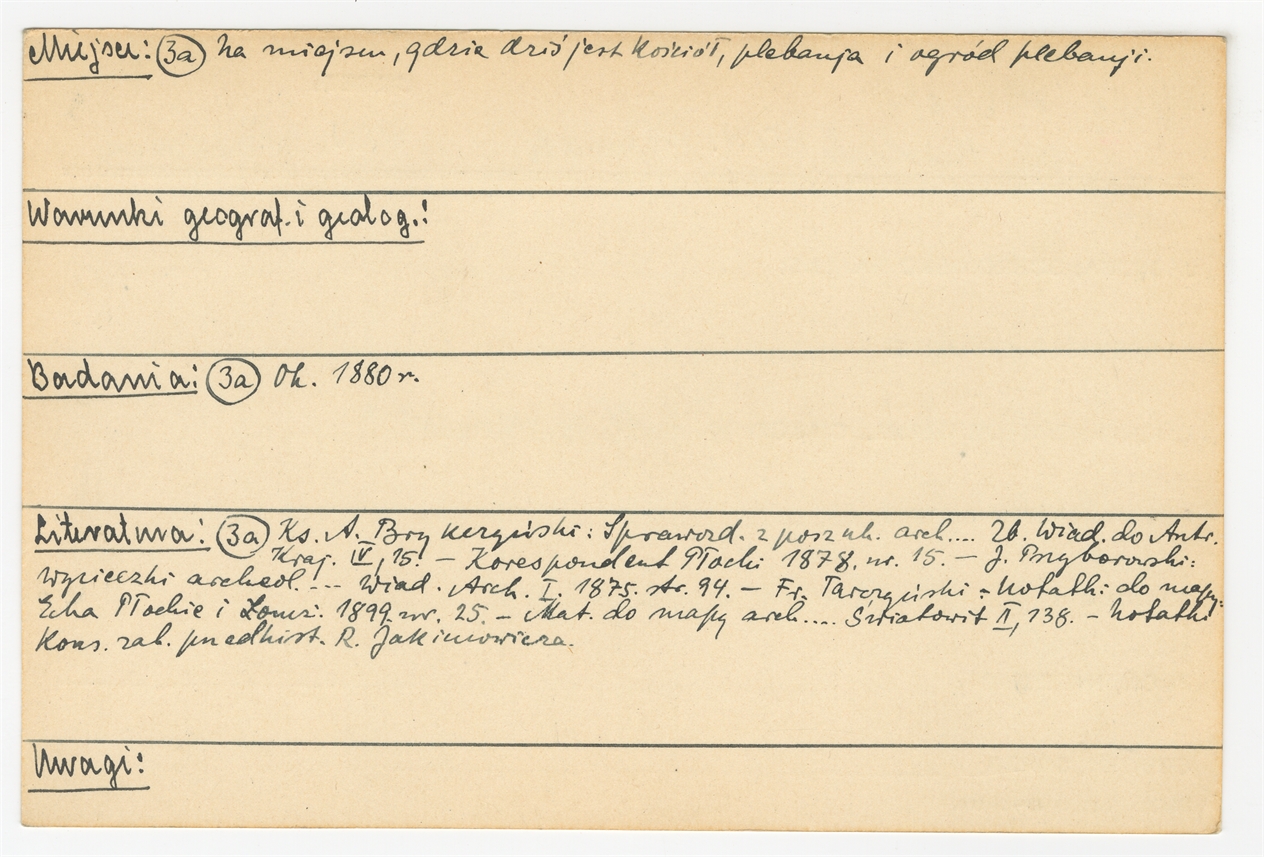 Miejsce: (3a) Na miejscu, gdzie dziś jest kościół, plebanja i ogród plebanji.
Warunki geograf. i geolog.:
Badania: (3a) Ok. 1880 r.
Literatura: (3a) Ks. A. Brykczyński: Sprawozd. z poszuk. arch.... Zb. Wiad. do Antr.
Kraj. IV, 15. – Korespondent Płocki 1878. nr. 15. – J. Przyborowski:
Wycieczki archeol.... Wiad. Arch. I. 1875. str. 94. – Fr. Tarczyński: Notatki do mapy:
Echa Płockie i Łomż. 1899. nr. 25. – Mat. do mapy arch.... Światowit II, 138. – Notatki
Kons. zab. przedhist. R. Jakimowicza.
Uwagi: